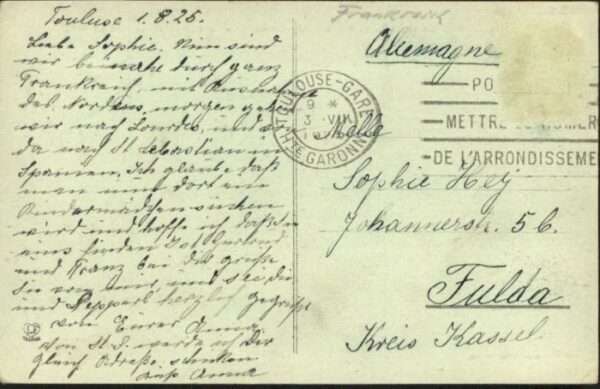 Toulouse 1.8.25.
Liebe Sophie. Nun sind
wir beinahe durch ganz
Frankreich, mit Ausnahme
des Nordens, morgen gehen
wir nach Lourdes, und von
da nach St. Sebastian in
Spanien. Ich glaube daß
man uns dort ein
Kindermädchen suchen
wird und hoffe ich daß sie
eins finden
und Franz bei dir grüße
sie von mir, und sei du
und Pepperl herzlich gegrüßt
von Eurer Anna
Von St. S. werde ich dir
gleich Adreße senken
Anna
Frankreich
Allemagne
TOULOUSE-GARE
9 *
3 - VIII
HTE GARONNE
PO
METTRE LE NUMERO
DE L'ARRONDISSEME
Melle
Sophie Hey
Johannerstr. 56.
Fulda
Kreis Kassel.